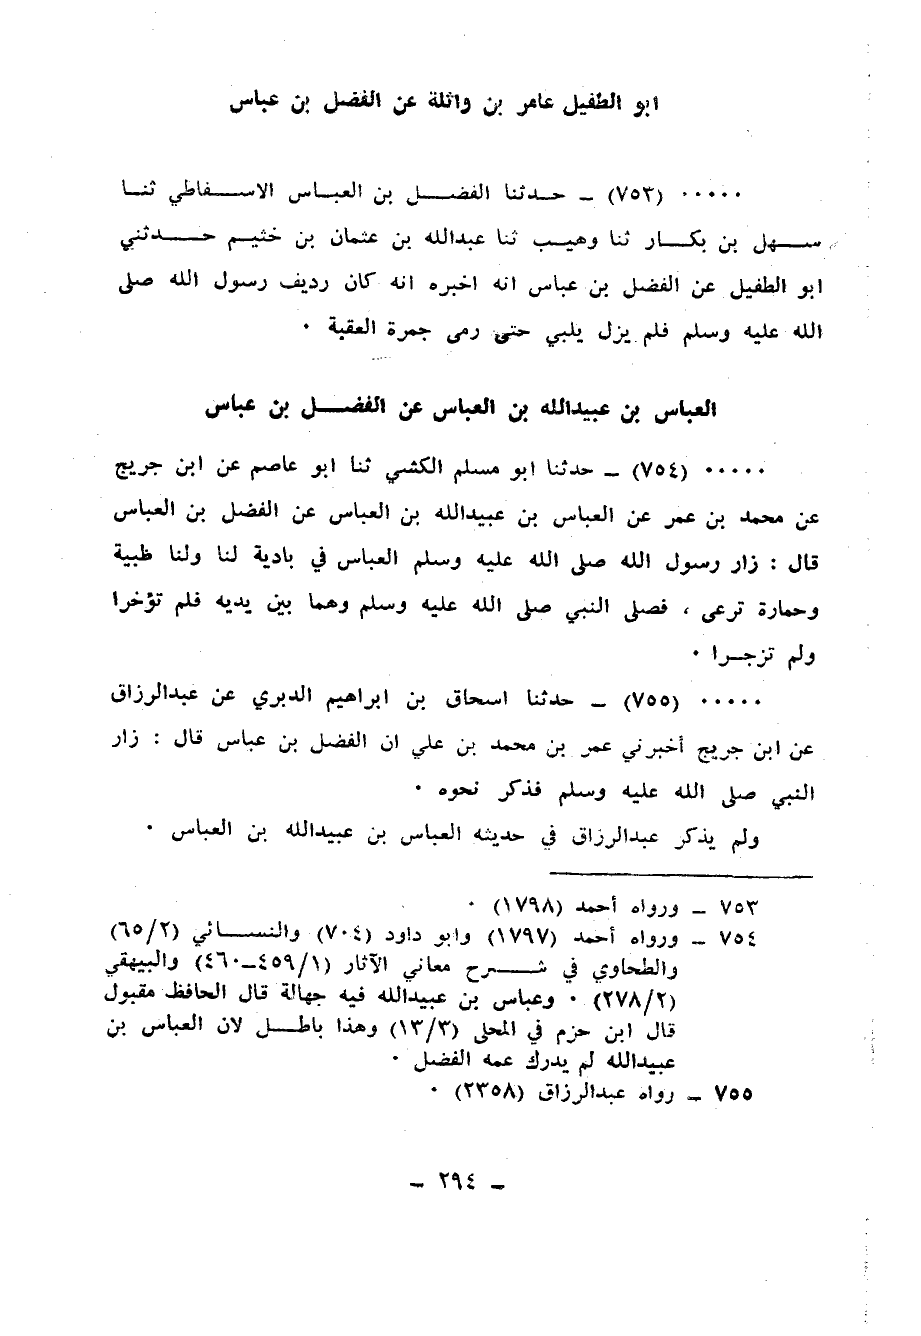 ابو الطفيل عامر بن واثلة عن الفضل بن عباس
٠٠٠٠٠ (٧٥٣) ـ حـدثنا الفضـــل بن العبـاس الاســـفاطي ثنـا
ســـهل بن بكـــار ثنا وهيـب ثنا عبدالله بن عثمان بن خثيـم حـــدثني
ابو الطفيل عن الفضل بن عباس انه اخبره انه كان رديف رسول الله صلى
الله عليه وسلم فلم يزل يلبي حتى رمى جمرة العقبة ٠
العباس بن عبيدالله بن العباس عن الفضـــل بن عباس
٠٠٠٠٠ (٧٥٤) ـ حدثنا ابو مسلم الكشي ثنا ابو عاصم عن ابن جريج
عن محمد بن عمر عن العباس بن عبيدالله بن العباس عن الفضل بن العباس
قال : زار رسول الله صلى الله عليه وسلم العباس في بادية لنا ولنا ظبية
وحمارة ترعى ، فصلى النبي صلى الله عليه وسلم وهما بين يديه فلم تؤخرا
ولم تزجـرا ٠
٠٠٠٠٠ (٧٥٥) ـ حدثنا اسحاق بن ابراهيم الدبري عن عبدالرزاق
عن ابن جريج أخبرني عمر بن محمد بن علي ان الفضل بن عباس قال : زار
النبي صلى الله عليه وسلم فذكر نحوه ٠
ولم يذكر عبدالرزاق في حديثه العباس بن عبيدالله بن العباس ٠
٧٥٣ ـ ورواه أحمد (١٧٩٨) ٠
٧٥٤ ـ ورواه أحمد (١٧٩٧) وابو داود (٧٠٤) والنســـائي (٦٥/٢)
والطحاوي في شـــرح معاني الآثار (٤٥٩/١ـ٤٦٠) والبيهقي
(٢٧٨/٢) ٠ وعباس بن عبيدالله فيه جهالة قال الحافظ مقبول
قال ابن حزم في المحلى (١٣/٣) وهذا باطـــل لان العباس بن
عبيدالله لم يدرك عمه الفضل ٠
٧٥٥ ـ رواه عبدالرزاق (٢٣٥٨) ٠
ـ ٢٩٤ ـ